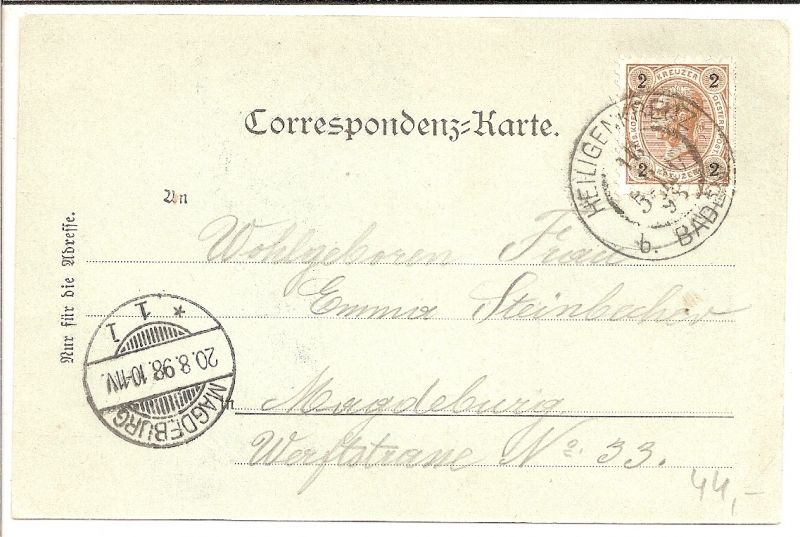 2 KREUZER 2
2 KREUZER 2
HEILIGENKREUZ
b. BADEN
Correspondenz-Karte.
An
Wohlgeboren Frau
Emma Steinbachor
Nur für die Adresse.
MAGDEBURG
20.8.98.10-11V.
1 1
*
in Magdeburg
Werftstrasse No. 33.
44,-